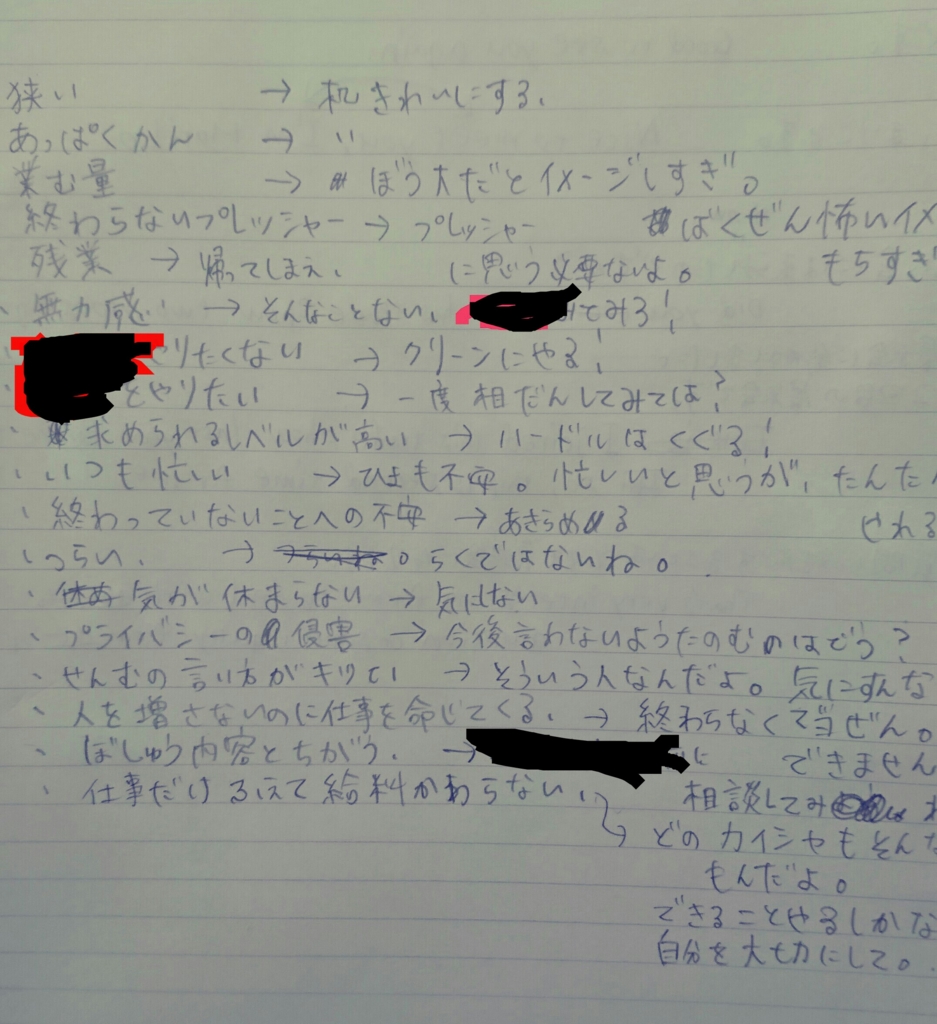 狭い → 机きれいにする、
あっぱくかん → 〃
業む量 → ぼう大だとイメージしすぎ。
終わらないプレッシャー → プレッシャー ばくぜん怖いイメ
残業 → 帰ってしまえ、 に思う必要ないよ。 もちすぎ
・無力感 → そんなことない、 みてみろ!
りたくない → クリーンにやる!
・ とやりたい → 一度相だんしてみては?
・求められるレベルが高い → ハードルはくぐる!
・いつも忙しい → ひまも不安。忙しいと思うが、たんたん
・終わっていないことへの不安 → あきらめる せれる
・つらい、 → らくではないね。
・気が休まらない → 気はない
・プライバシーの侵害 → 今後言わないようたのむのはどう?
・せんむの言い方がキツイ → そういう人なんだよ。気にすんな
・人を増さないのに仕事を命じてくる、 → 終わらなくて当ぜん。
・ぼしゅう内容とちがう、 → に できません
・仕事だけふえて給料かわらない、 相談してみ
→ どのカイシャもそんな
もんだよ。
できることやるしかな
自分を大切にして。